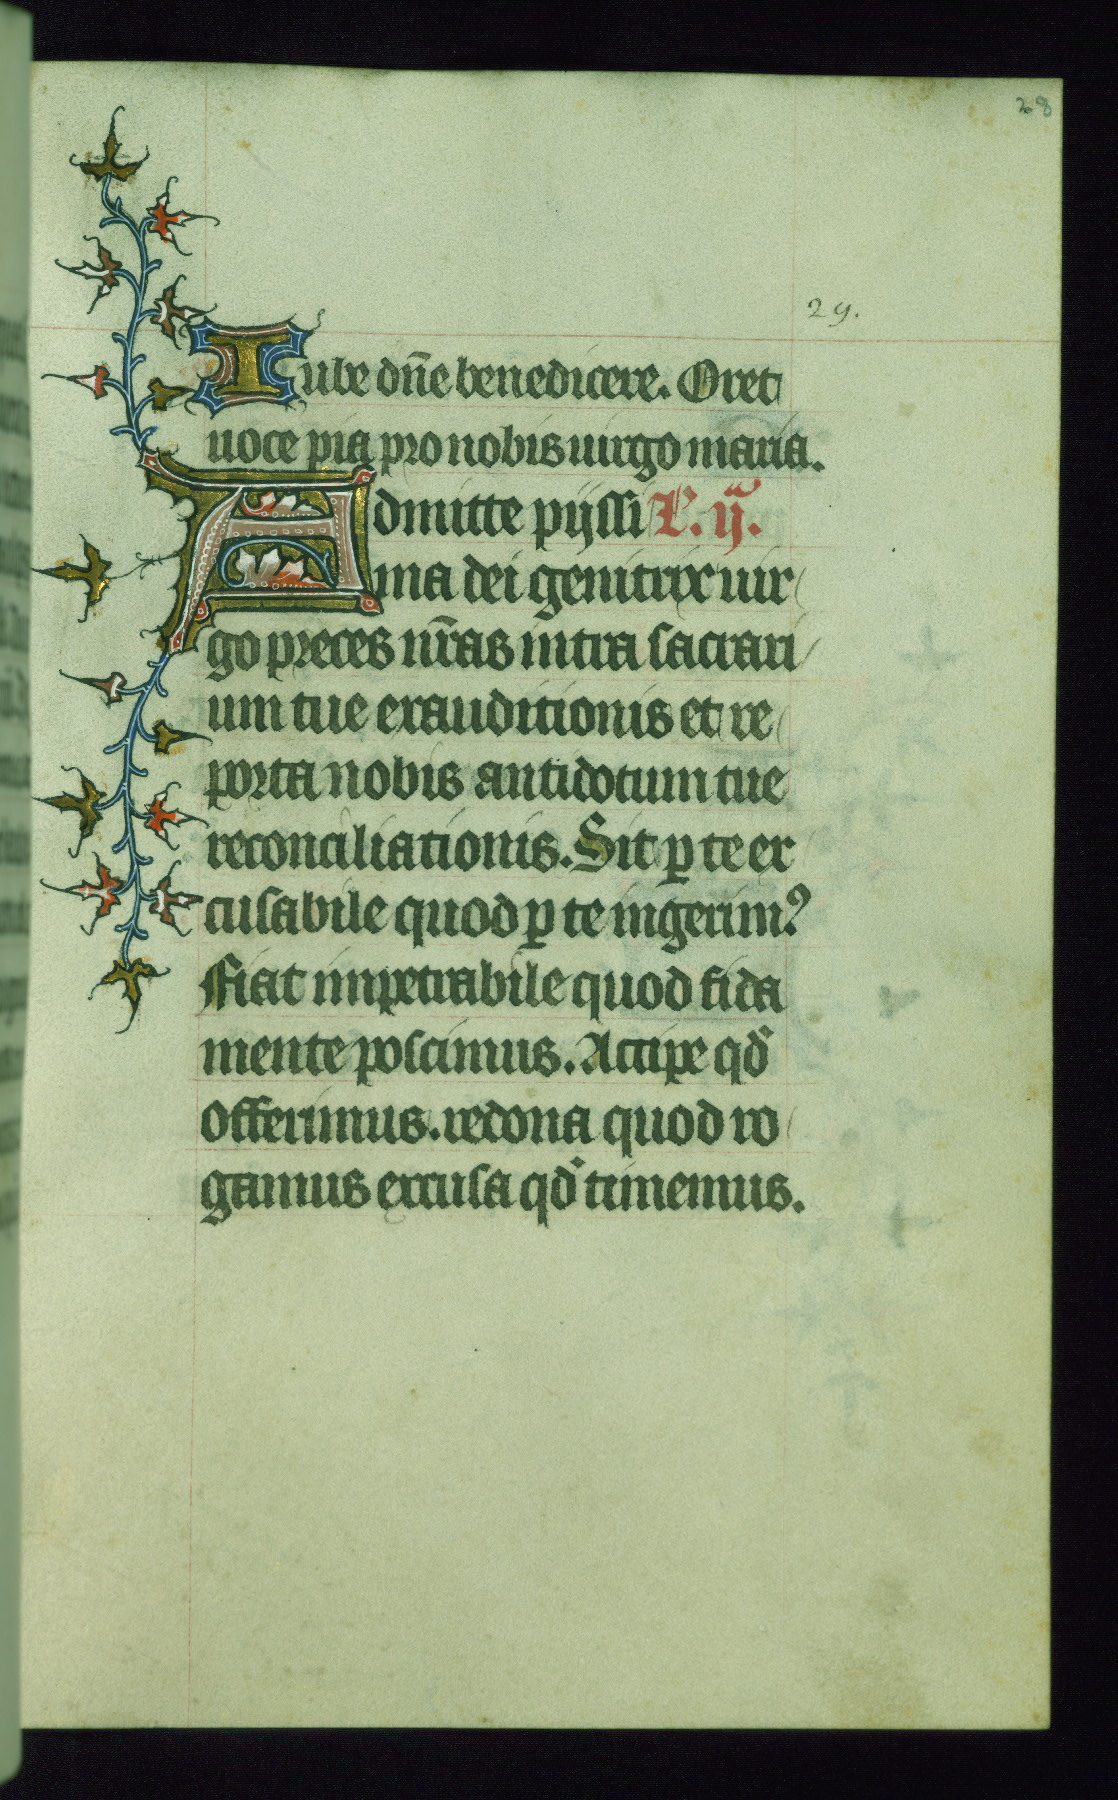 28
29.
Iube dn̄e benedicere. Oret
uoce pia pro nobis uirgo maria.
Admitte pijssi L. ij.
ma dei genitrix uir
go preces nr̄as intra sacrari
um tue exauditionis et re
porta nobis antidotum tue
reconciliationis. Sit ꝑ te ex
cusabile quod ꝑ te ingerimꝰ
Fiat impetrabile quod fida
mente poscimus. Accipe qd̓
offerimus. redona quod ro
gamus excusa qd̓ timemus.